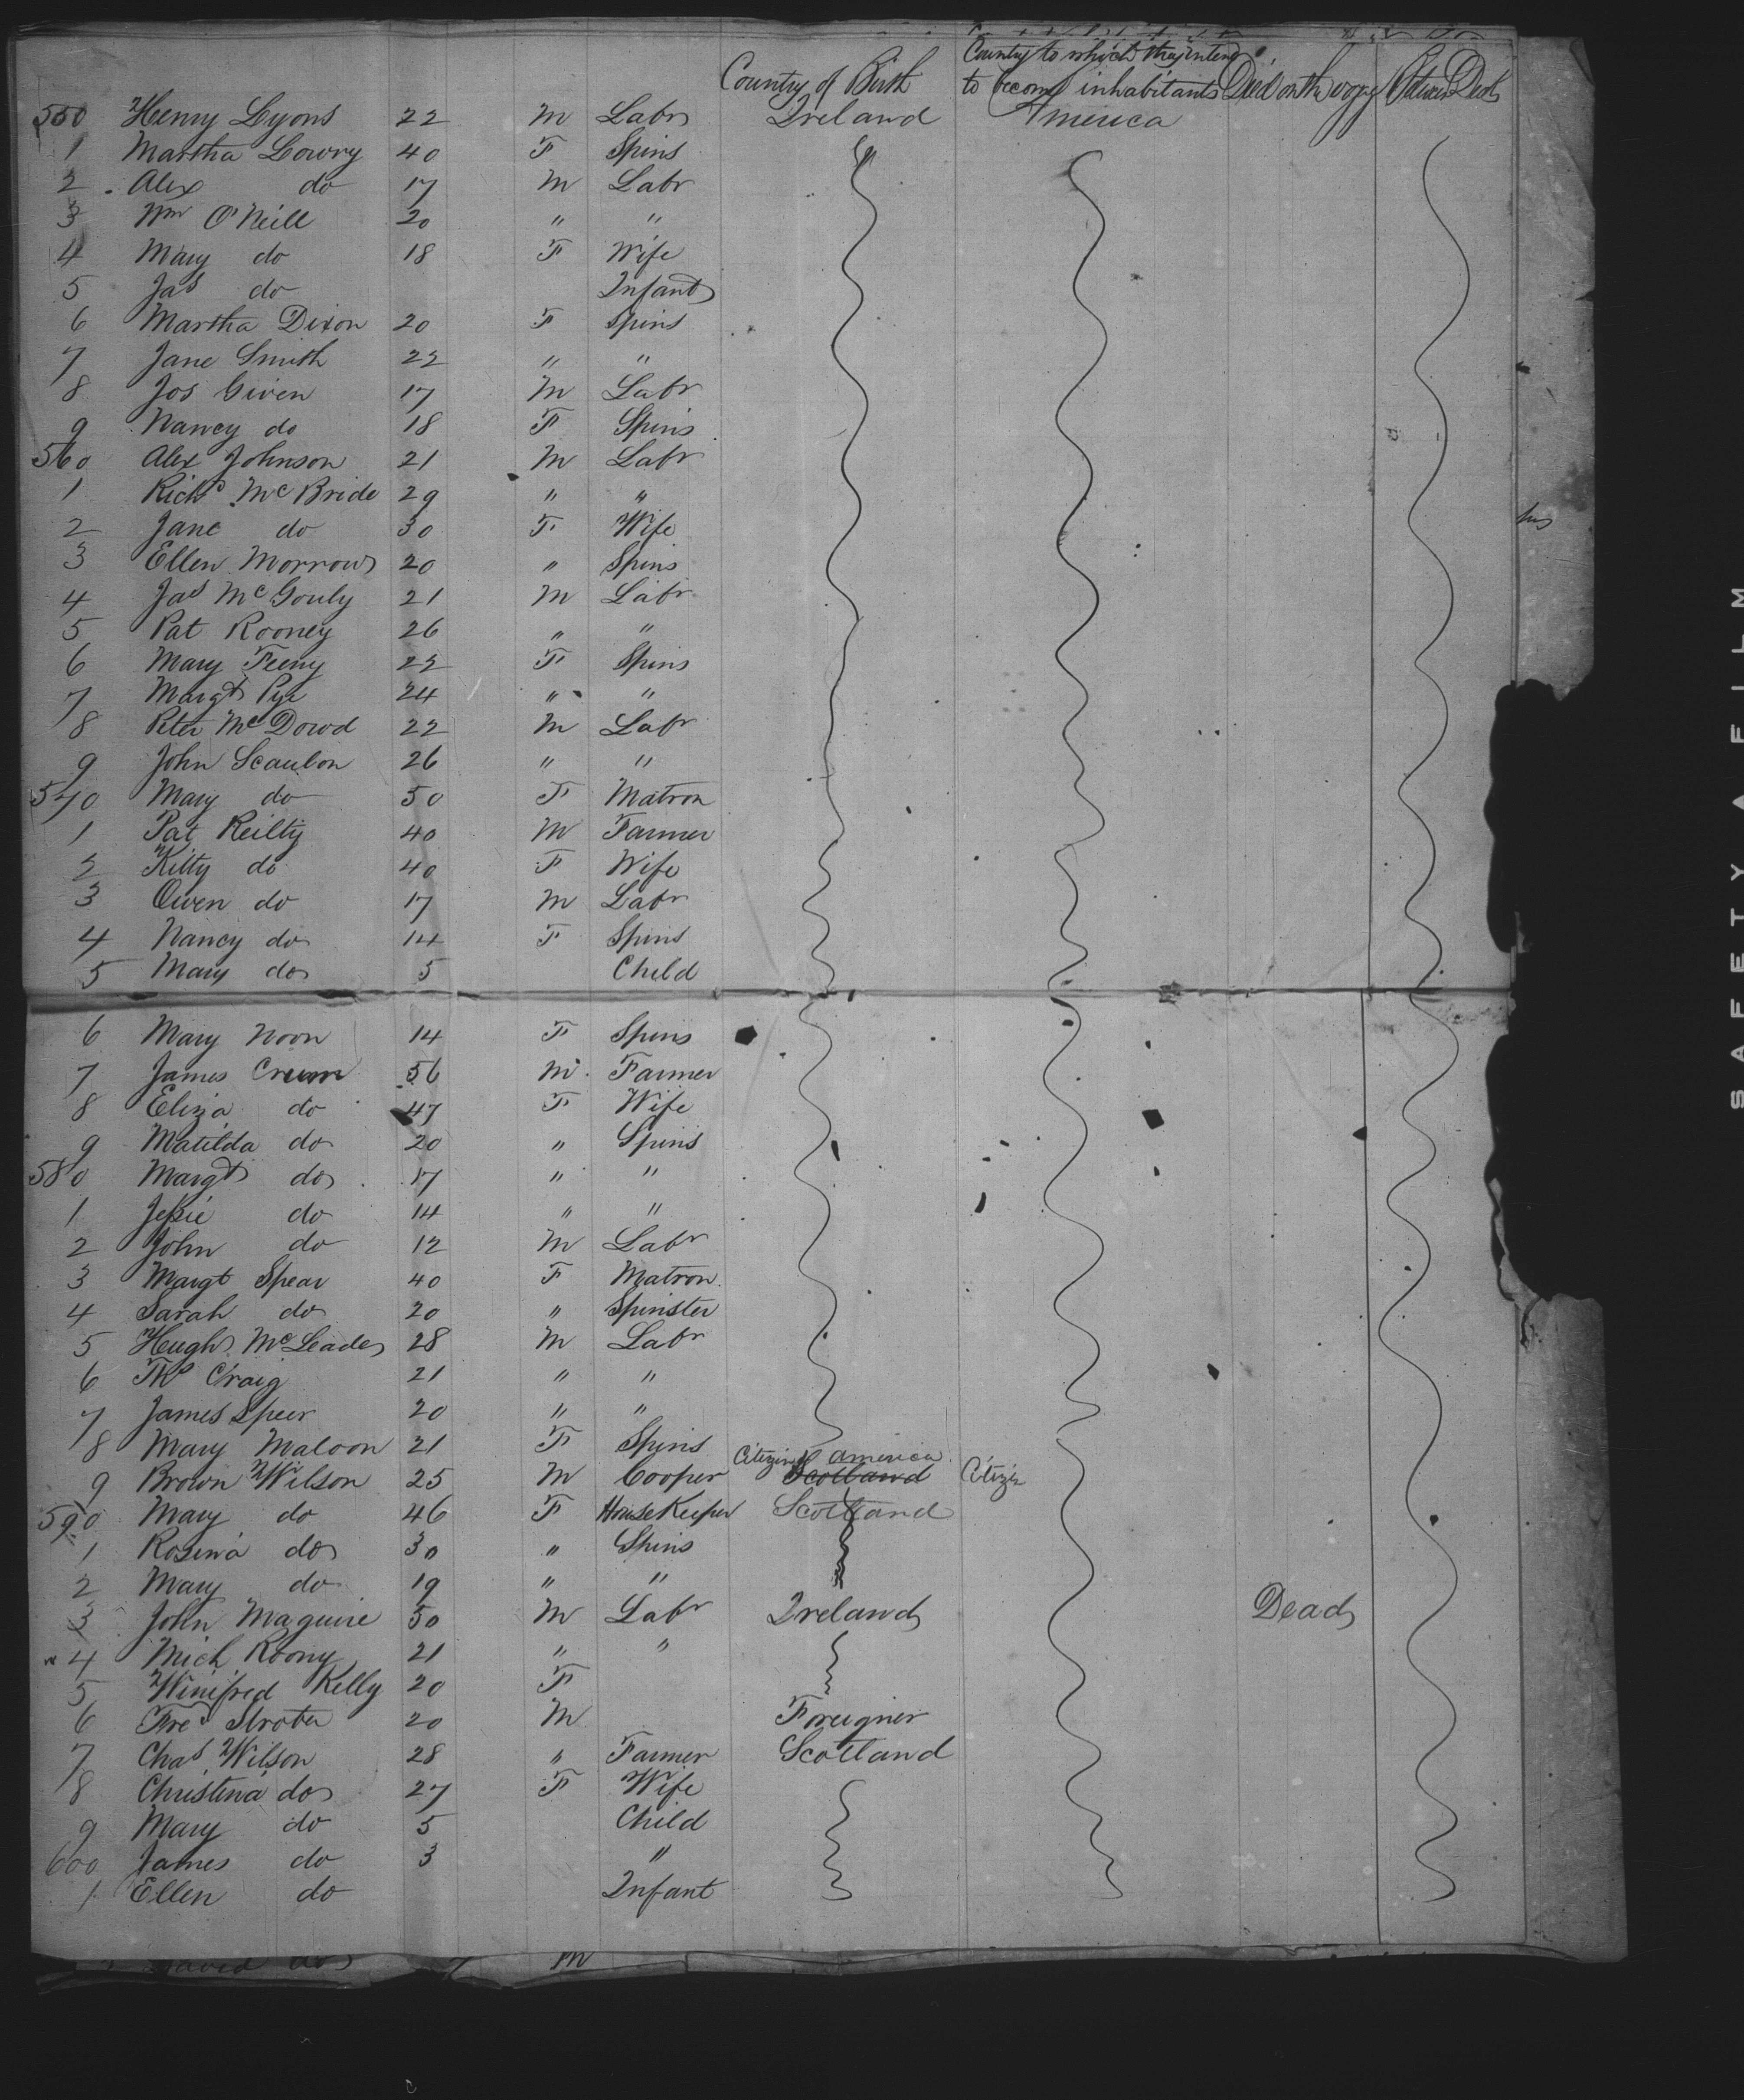 Country of Birth Country to which they intend to become inhabitants Died on the voyage Between Decks
550 Henry Lyons 22 M Labr Ireland America
1 Martha Lowry 40 F Spins
2 Alex do 17 M Labr
3 Wm O'Neill 20 " "
4 Mary do 18 F Wife
5 Jas do Infant
6 Martha Dixon 20 F Spins
7 Jane Smith 22 " "
8 Jos Given 17 M Labr
9 Nancy do 18 F Spins
560 Alex Johnson 21 M Labr
1 Richd McBride 29 " "
2 Jane do 30 F Wife
3 Ellen Morrow 20 " Spins
4 Jas McGouly 21 M Labr
5 Pat Rooney 26 " "
6 Mary Feeny 22 F Spins
7 Margt Pye 24 " "
8 Peter McDowd 22 M Labr
9 John Scanlon 26 " "
570 Mary do 50 F Matron
1 Pat Reilly 40 M Farmer
2 Kitty do 40 F Wife
3 Owen do 17 M Labr
4 Nancy do 14 F Spins
5 Mary do 5 Child
6 Mary Noon 14 F Spins
7 James Crum 56 M Farmer
8 Eliza do 47 F Wife
9 Matilda do 20 " Spins
580 Margt do 17 " "
1 Jessie do 14 " "
2 John do 12 M Labr
3 Margt Spear 40 F Matron
4 Sarah do 20 " Spinster
5 Hugh McLeade 28 M Labr
6 Ths Craig 21 " "
7 James Speer 20 " "
8 Mary Maloon 21 F Spins
9 Brown Wilson 25 M Cooper Citizen America Scotland Citizn
590 Mary do 46 F HouseKeeper Scotland
1 Rosina do 30 " Spins
2 Mary do 19 " "
3 John Maguire 50 M Labr Ireland Dead
4 Mich Roony 21 " "
5 Winifred Kelly 20 F
6 Fred Stroter 20 M Foreigner
7 Chas Wilson 28 " Farmer Scotland
8 Christina do 27 F Wife
9 Mary do 5 Child
600 James do 3 "
1 Ellen do Infant
David do 7 M
SAFETY FILM